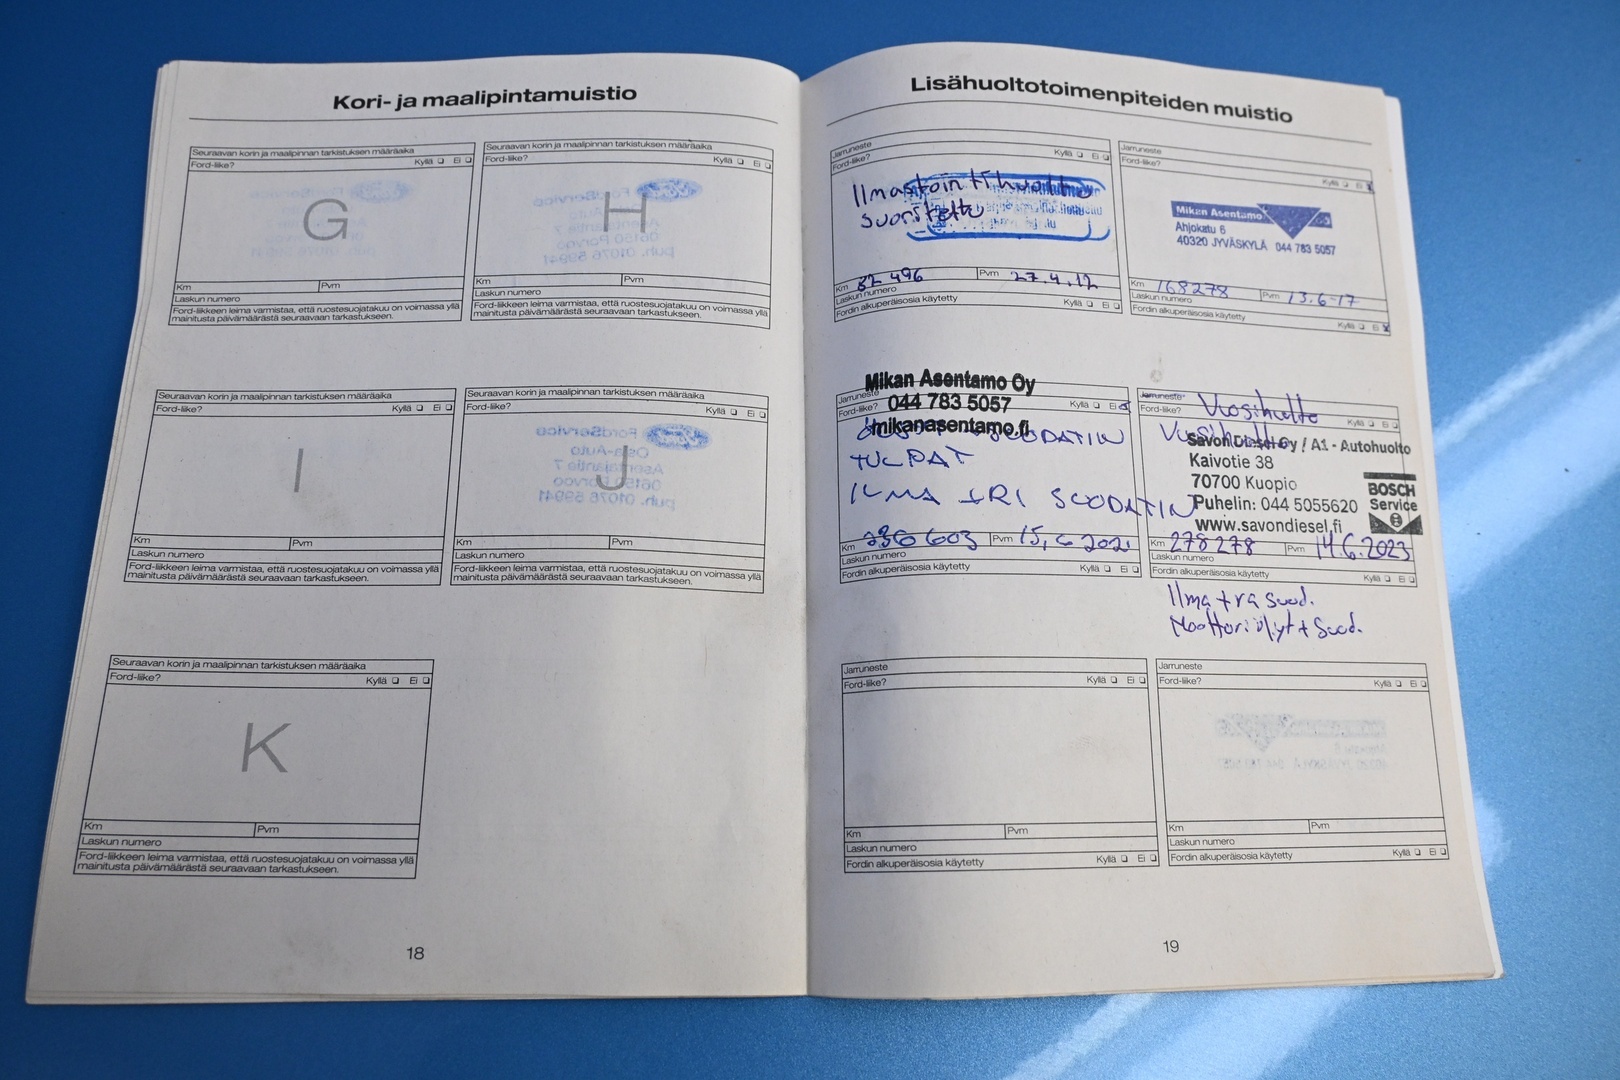 Kori- ja maalipintamuistio
Seuraavan korin ja maalipinnan tarkistuksen määräaika
Ford-liike? Kyllä ❏ Ei ❏
G
Km Pvm
Laskun numero
Ford-liikkeen leima varmistaa, että ruostesuojatakuu on voimassa yllä
mainitusta päivämäärästä seuraavaan tarkastukseen.
Seuraavan korin ja maalipinnan tarkistuksen määräaika
Ford-liike? Kyllä ❏ Ei ❏
H
Km Pvm
Laskun numero
Ford-liikkeen leima varmistaa, että ruostesuojatakuu on voimassa yllä
mainitusta päivämäärästä seuraavaan tarkastukseen.
Seuraavan korin ja maalipinnan tarkistuksen määräaika
Ford-liike? Kyllä ❏ Ei ❏
I
Km Pvm
Laskun numero
Ford-liikkeen leima varmistaa, että ruostesuojatakuu on voimassa yllä
mainitusta päivämäärästä seuraavaan tarkastukseen.
Seuraavan korin ja maalipinnan tarkistuksen määräaika
Ford-liike? Kyllä ❏ Ei ❏
J
Km Pvm
Laskun numero
Ford-liikkeen leima varmistaa, että ruostesuojatakuu on voimassa yllä
mainitusta päivämäärästä seuraavaan tarkastukseen.
Seuraavan korin ja maalipinnan tarkistuksen määräaika
Ford-liike? Kyllä ❏ Ei ❏
K
Km Pvm
Laskun numero
Ford-liikkeen leima varmistaa, että ruostesuojatakuu on voimassa yllä
mainitusta päivämäärästä seuraavaan tarkastukseen.
18
Lisähuoltotoimenpiteiden muistio
Jarruneste
Ford-liike? Kyllä ❏ Ei ❏
Ilmastointihuolto
suoritettu
Km 82 496 Pvm 27.4.12
Laskun numero
Fordin alkuperäisosia käytetty Kyllä ❏ Ei ❏
Jarruneste
Ford-liike? Kyllä ❏ Ei x
Mikan Asentamo
Ahjokatu 6
40320 JYVÄSKYLÄ 044 783 5057
Km 168278 Pvm 13.6-17
Laskun numero
Fordin alkuperäisosia käytetty Kyllä ❏ Ei x
Mikan Asentamo Oy
Jarruneste
044 783 5057
Ford-liike? Kyllä ❏ Ei x
mikanasentamo.fi
SUODATIN
TULPAT
ILMA IRI SUODATIN
Km 236 603 Pvm 15,6 2021
Laskun numero
Fordin alkuperäisosia käytetty Kyllä ❏ Ei ❏
Jarruneste
Vuosihuolto
Ford-liike? Kyllä ❏ Ei ❏
Vuosihuolto
Savon Diesel Oy / A1 - Autohuolto
Kaivotie 38
70700 Kuopio
Puhelin: 044 5055620
www.savondiesel.fi
BOSCH
Service
Km 278278 Pvm 14.6.2023
Laskun numero
Fordin alkuperäisosia käytetty Kyllä ❏ Ei ❏
Ilma + ra suod.
Moottoriöljyt + Suod.
Jarruneste
Ford-liike? Kyllä ❏ Ei ❏
Km Pvm
Laskun numero
Fordin alkuperäisosia käytetty Kyllä ❏ Ei ❏
Jarruneste
Ford-liike? Kyllä ❏ Ei ❏
Km Pvm
Laskun numero
Fordin alkuperäisosia käytetty Kyllä ❏ Ei ❏
19